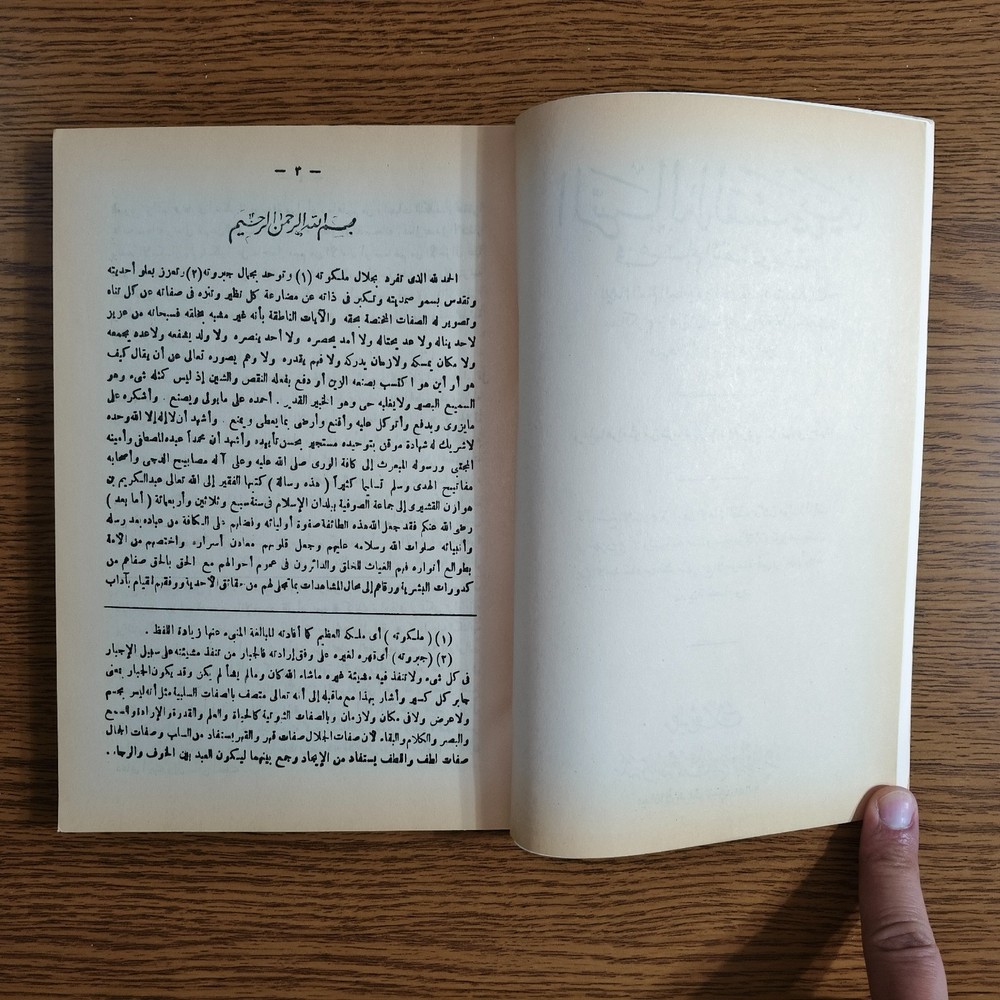 — ٣ —
بسم الله الرحمن الرحيم
الحمد لله الذى تفرد بجلال ملكوته (١) وتوحد بجمال جبروته (٢) وتعزز بعلو أحديته
وتقدس بسمو صمديته وتكبر فى ذاته عن مضارعة كل نظير وتنزه فى صفاته عن كل تناه
وتصوير له الصفات المختصة بحقه والآيات الناطقة بأنه غير مشبه بخلقه فسبحانه من عزيز
لاحد يناله ولا عد يحتاله ولا أمد يحصره ولا أحد ينصره ولا ولد يشفعه ولاعدد يجمعه
ولا مكان يمسكه ولازمان يدركه ولا فهم يقدره ولا وهم يصوره تعالى عن أن يقال كيف
هو أو أين هو أو اكتسب بصنعه الزين أو دفع بفعله النقص والشين إذ ليس كمثله شىء وهو
السميع البصير ولايغلبه حى وهو الخبير القدير . أحمده على مايولى ويصنع . وأشكره على
مايزوى ويدفع وأتوكل عليه وأقنع وأرضى بما يعطى ويمنع . وأشهد أن لا إله إلا الله وحده
لاشريك له شهادة موقن بتوحيده مستجير بحسن تأييده وأشهد أن محمداً عبده المصطفى وأمينه
المجتبى ورسوله المبعوث إلى كافة الورى صلى الله عليه وعلى آله مصابيح الدجى وأصحابه
مفاتيح الهدى وسلم تسليما كثيراً (هذه رسالة) كتبها الفقير إلى الله تعالى عبدالكريم بن
هوازن القشيرى إلى جماعة الصوفية ببلدان الإسلام فى سنة سبع وثلاثين وأربعمائة (أما بعد)
رضى الله عنكم فقد جعل الله هذه الطائفة صفوة أوليائه وفضلهم على الكافة من عباده بعد رسله
وأنبيائه صلوات الله وسلامه عليهم وجعل قلوبهم معادن أسراره واختصهم من الأمة
بطوالع أنواره فهم الغياث للخلق والدائرون فى عموم أحوالهم مع الحق بالحق صفاهم من
كدورات البشرية ورقاهم إلى محال المشاهدات بما تجلى لهم من حقائق الأحدية ووفقهم للقيام بآداب
(١) (ملكوته) أى ملكه العظيم كما أفادته المبالغة المنبىء عنها زيادة اللفظ .
(٢) (جبروته) أى قهره لغيره على وفق إرادته فالجبار من تنفذ مشيئته على سبيل الإجبار
فى كل شىء ولا تنفذ فيه مشيئة غيره ماشاء الله كان ومالم يشأ لم يكن وقد يكون الجبار بمعنى
جابر كل كسير وأشار بهذا مع ماقبله إلى أنه تعالى متصف بالصفات السلبية مثل أنه ليس بجسم
ولا عرض ولا فى مكان ولا زمان وبالصفات الثبوتية كالحياة والعلم والقدرة والإرادة والسمع
والبصر والكلام والبقاء لأن صفات الجلال صفات قهر والقهر يستفاد من السلب وصفات الجمال
صفات لطف واللطف يستفاد من الإيجاد وجمع بينهما ليكون العبد بين الخوف والرجاء .